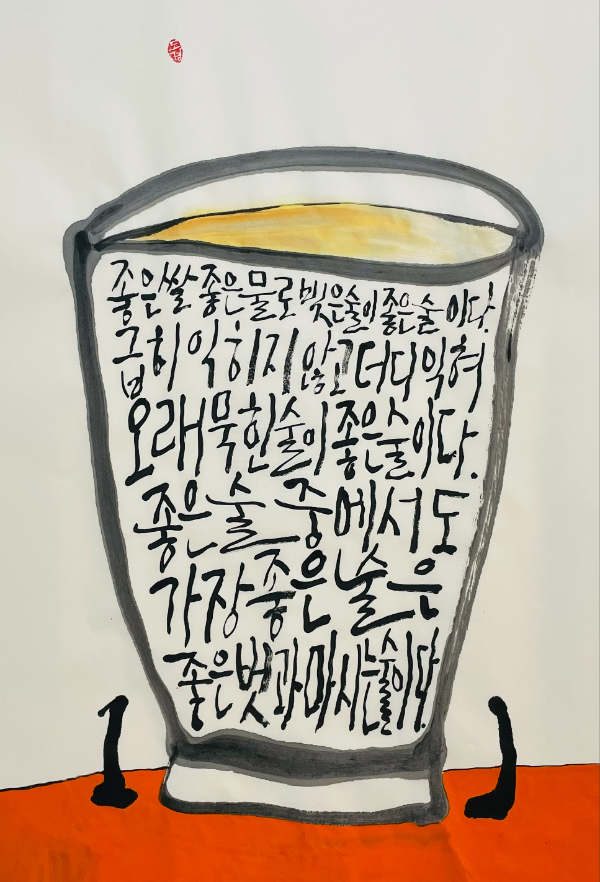 좋은쌀 좋은물로 빚은술이 좋은술이다.
급히 익히지 않고 더디 익혀
오래 묵힌 술이 좋은 술이다.
좋은 술 중에서도
가장 좋은 술은
좋은 벗과 마시는 술이다.